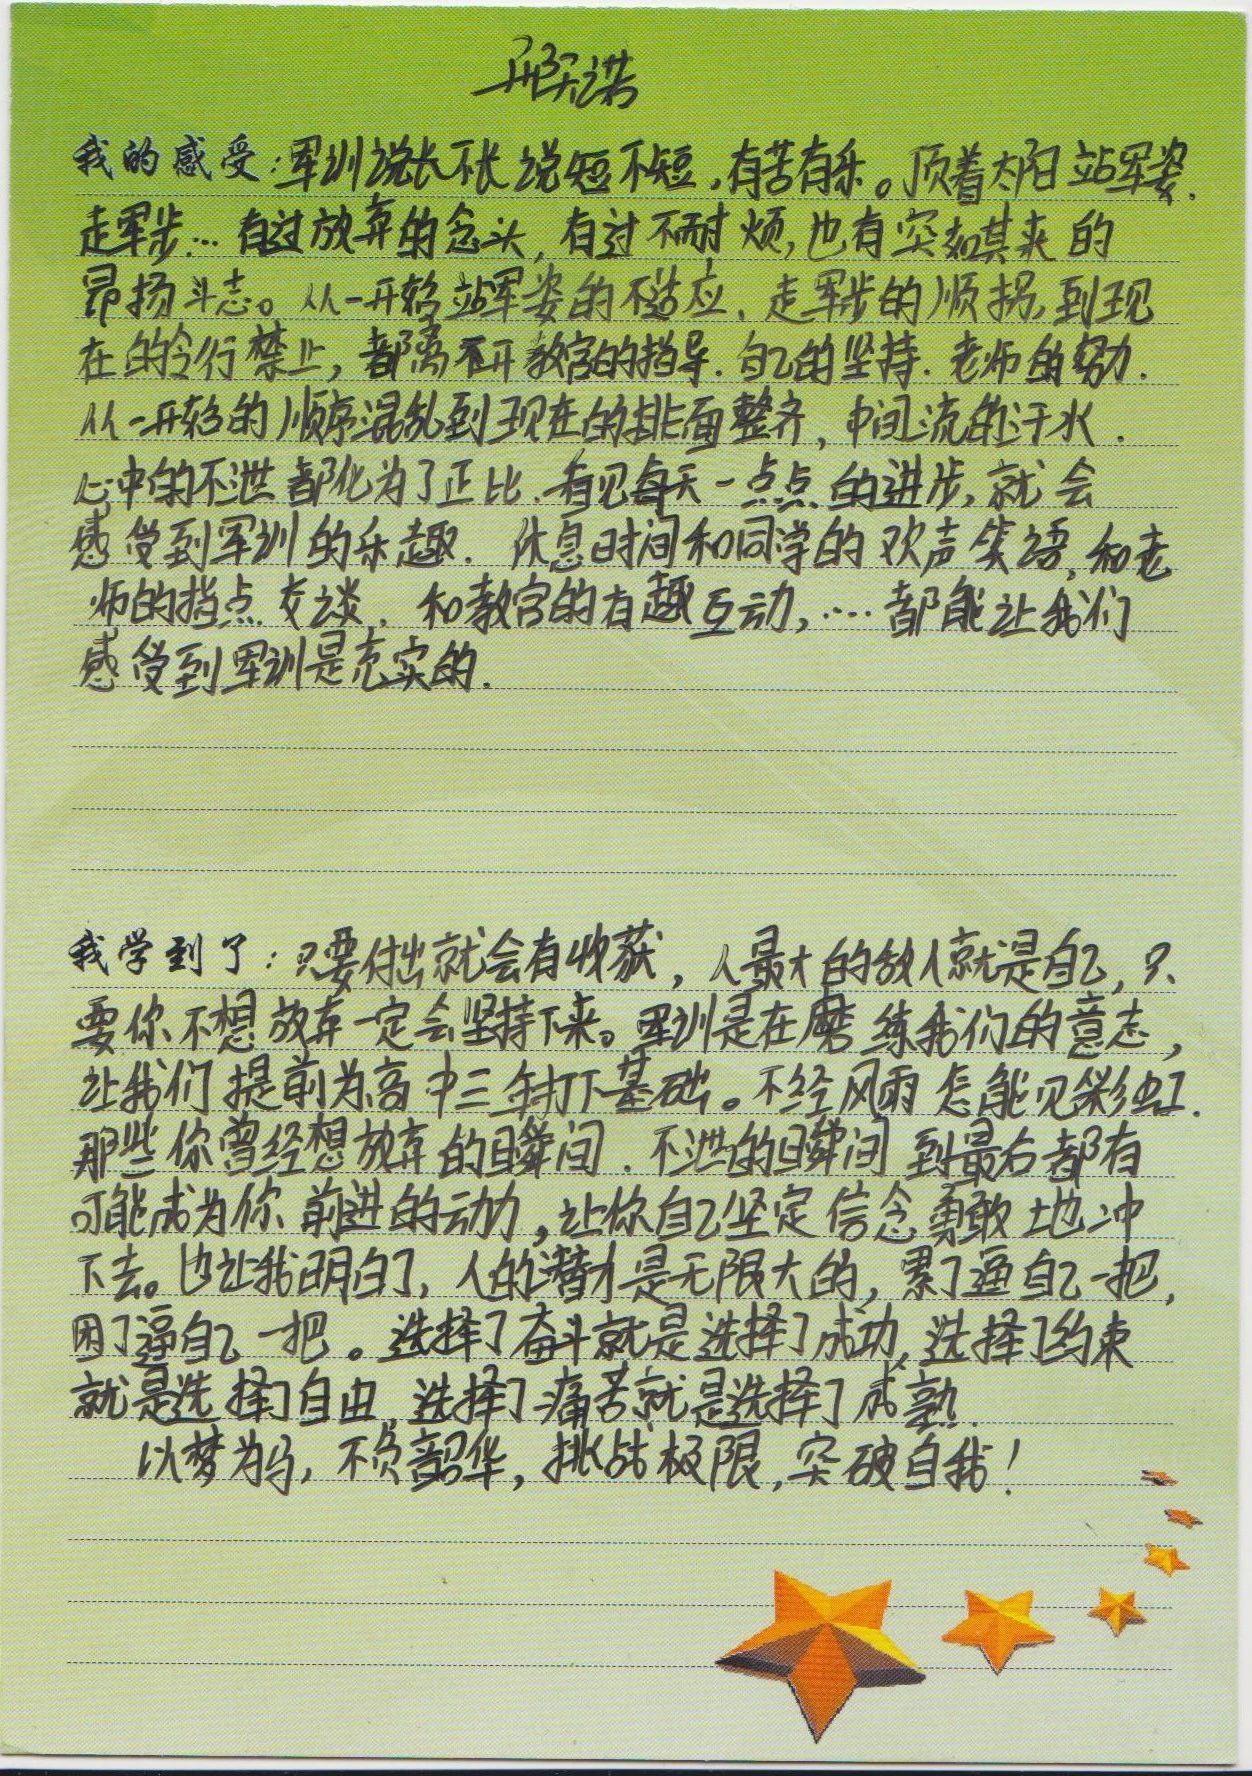 我的感受：军训说长不长说短不短，有苦有乐。顶着太阳站军姿.
走军步…有过放弃的念头，有过不耐烦，也有突如其来的
昂扬斗志。从一开始站军姿的不适应、走军步的顺拐，到现
在的令行禁止，都离不开教官的指导.自己的坚持.老师的努力.
从一开始的顺序混乱到现在的排面整齐，中间流的汗水.
心中的不泄都化为了正比.看见每天一点点的进步，就会
感受到军训的乐趣.休息时间和同学的欢声笑语，和老
师的指点交谈，和教官的有趣互动，…都能让我们
感受到军训是充实的.
我学到了：只要付出就会有收获，人最大的敌人就是自己，只
要你不想放弃一定会坚持下来。军训是在磨练我们的意志，
让我们提前为高中三年打下基础。不经风雨怎能见彩虹.
那些你曾经想放弃的瞬间.不泄的瞬间到最后都有
可能成为你前进的动力，让你自己坚定信念勇敢地冲
下去。也让我明白了，人的潜力是无限大的，累了逼自己一把，
困了逼自己一把。选择了奋斗就是选择了成功，选择了约束
就是选择了自由，选择了痛苦就是选择了成熟.
以梦为马，不负韶华，挑战极限，突破自我！